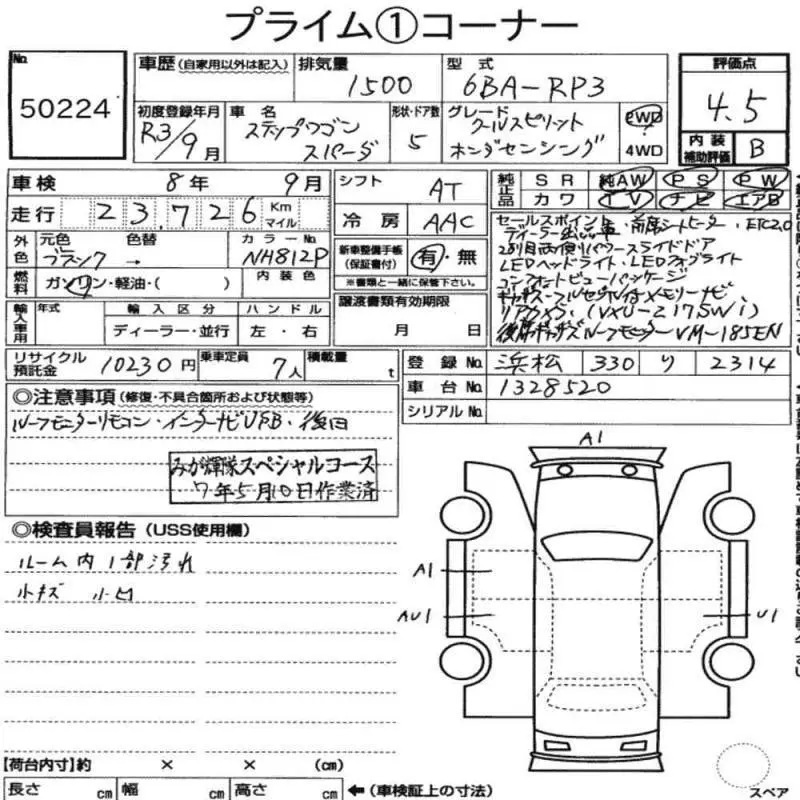 プライム①コーナー
No. 50224
車歴 (自家用以外は記入)
排気量 1500
型式 6BA-RP3
評価点 4.5
初度登録年月 R3/9月
車名 ステップワゴン スパーダ
形状・ドア数 5
グレード クールスピリット ホンダセンシング
2WD 4WD
内装補助評価 B
車検 8年 9月
シフト AT
純正品 SR 純AW PS PW
カワ TV ナビ エアB
走行 23,726 Km マイル
冷房 AAC
外色 元色 ブラック → 色替
カラーNo. NH812P
新車整備手帳 (保証書付) 有・無
※書類と一緒に保管下さい。
燃料 ガソリン・軽油・( )
内装色
セールスポイント
ディーラー出品車・前席シートヒーター・ETC2.0
2列目両側パワースライドドア
LEDヘッドライト・LEDフォグライト
コンフォートビューパッケージ
ギャザズ・フルセグTV付メモリーナビ
リアカメラ・(VXU-217SWi)
後席ギャザズルーフモニターVM-185EN
輸入車用 年式 輸入区分 ハンドル
ディーラー・並行 左・右
譲渡書類有効期限 月 日
リサイクル預託金 10230円
乗車定員 7人
積載量 t
登録No. 浜松 330 り 2314
車台No. 1328520
シリアルNo.
◎注意事項 (修復・不具合箇所および状態等)
ルーフモニターリモコン・インターナビUSB・後日
みが輝隊スペシャルコース
7年5月10日作業済
◎検査員報告 (USS使用欄)
ルーム内1部汚れ
小キズ 小凹
A1
A1
AU1
U1
スペア
【荷台内寸】約 × × (cm)
長さ cm 幅 cm 高さ cm ←(車検証上の寸法)